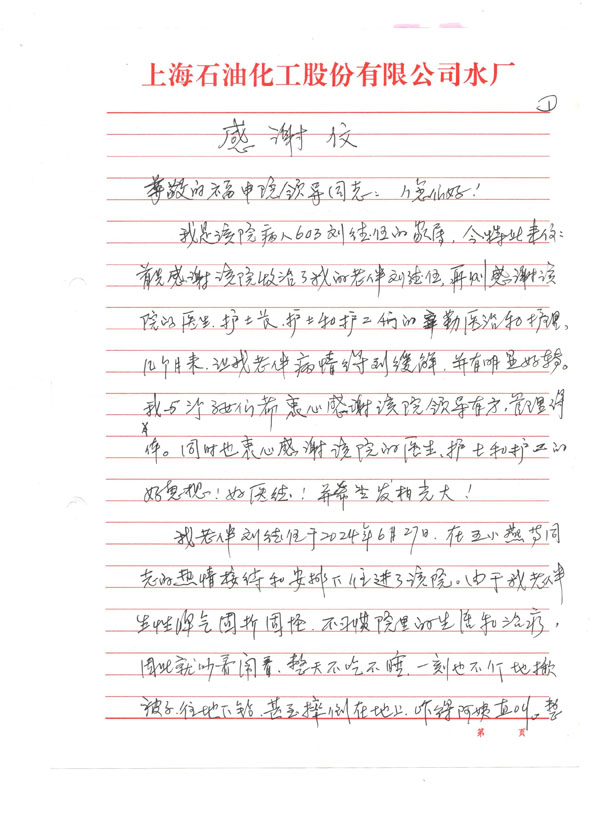 上海石油化工股份有限公司水厂
①
感谢信
尊敬的福申院领导同志：您们好！
我是该院病人603刘德位的家属，今特此来信：
首先感谢该院收治了我的老伴刘德位，再则感谢该
院的医生、护士长、护士和护工们的辛勤医治和护理，
几个月来，让我老伴病情得到缓解，并有明显好转。
我与子女们都衷心感谢该院领导有方，管理得
体。同时也衷心感谢该院的医生、护士和护工的
好思想！好医德！并希望发扬光大！
我老伴刘德位于2024年6月27日，在王小燕等同
志的热情接待和安排下住进了该院。由于我老伴
生性脾气固折固怪，不习惯院里的生活和治疗，
因此就吵着闹着，整天不吃不睡，一刻也不停地掀
被子、往地下钻，甚至摔倒在地上，吓得阿姨直叫。整
第 页